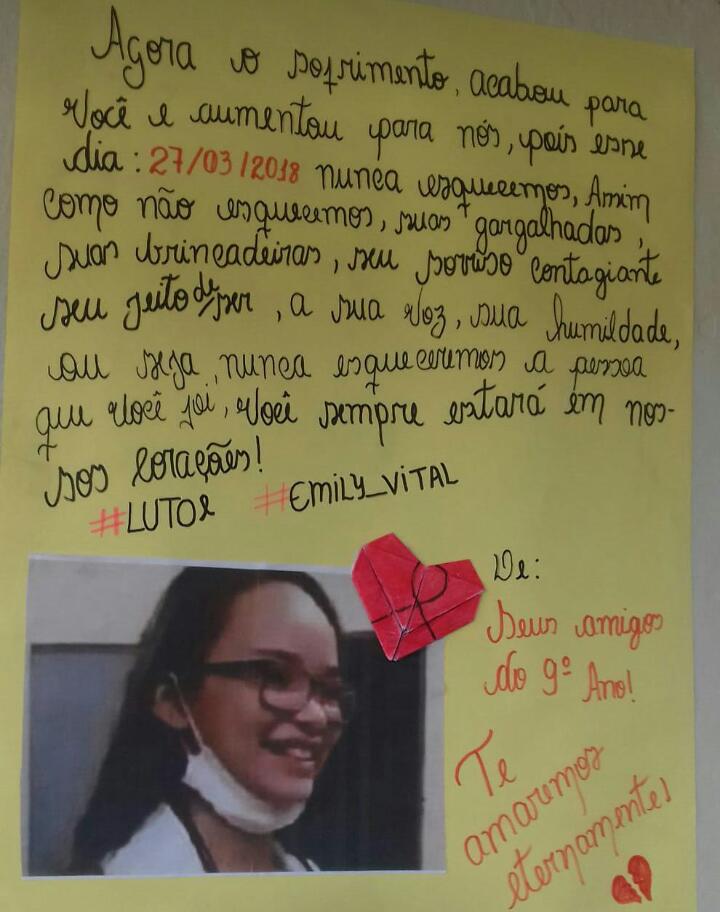 Agora o sofrimento, acabou para
Você e aumentou para nós, pois esse
dia: 27/03/2018 nunca esquecemos, Assim
como não esquecemos, suas gargalhadas,
suas brincadeiras, seu sorriso contagiante
seu jeito de ser, a sua voz, sua humildade,
ou seja, nunca esqueceremos a pessoa
que você foi, Você sempre estará em nos-
sos corações!
#LUTO #EMILY_VITAL
De:
Seus amigos
do 9º Ano!
Te
amaremos
eternamente!